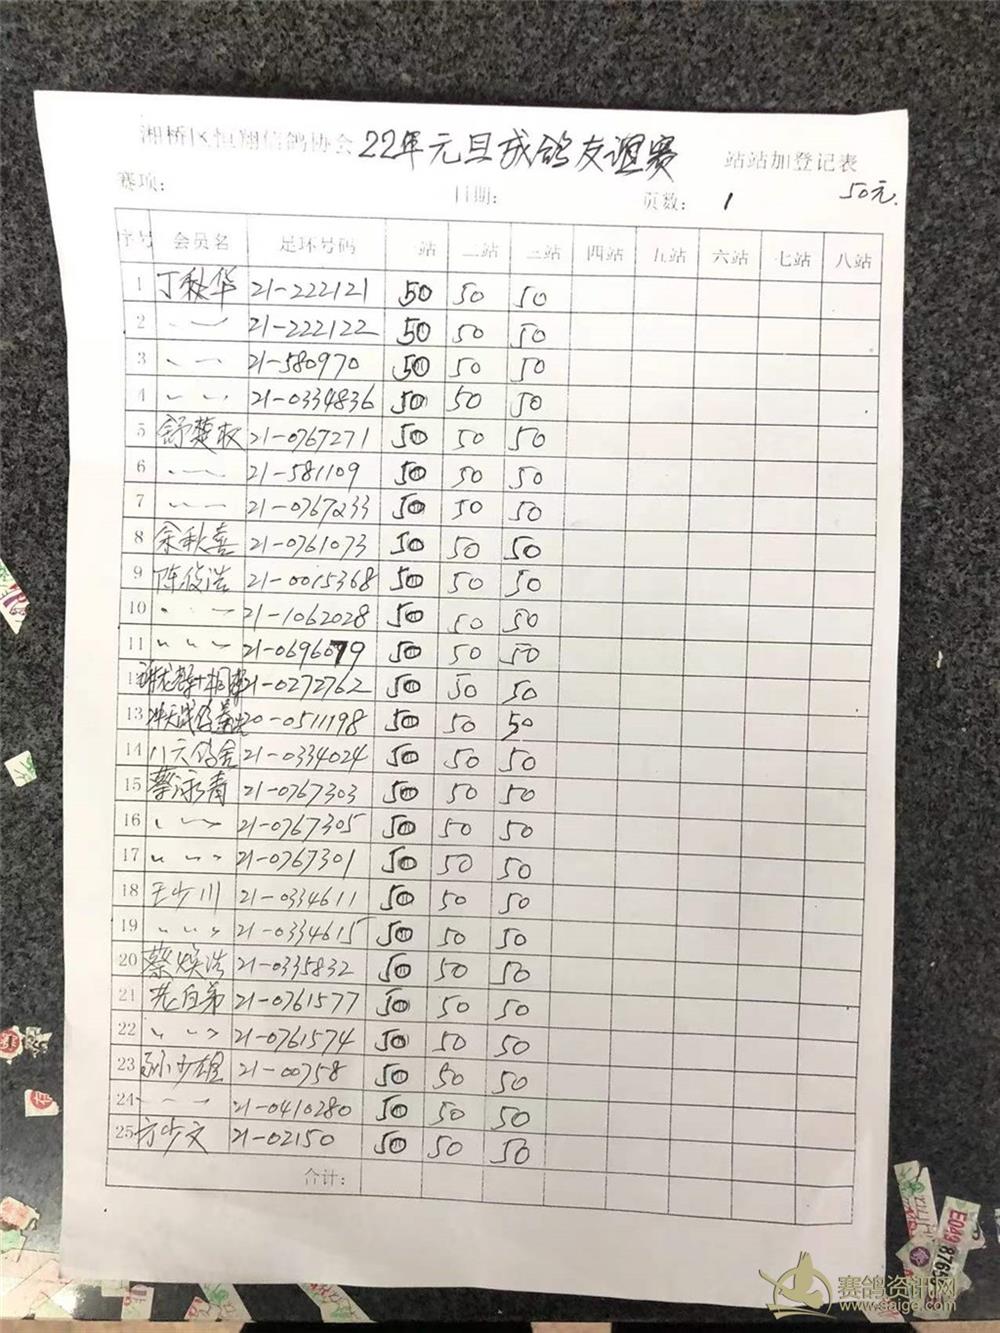 湘桥区恒翔信鸽协会 22年元旦成鸽友谊赛 站站加登记表
赛项： 日期： 页数： 1 50元.
序号 会员名 足环号码 一站 二站 三站 四站 五站 六站 七站 八站
1 丁秋华 21-222121 50 50 50
2 〃 21-222122 50 50 50
3 〃 21-580970 50 50 50
4 〃 21-0334836 50 50 50
5 舒楚权 21-0767271 50 50 50
6 〃 21-581109 50 50 50
7 〃 21-0767233 50 50 50
8 余秋喜 21-0761073 50 50 50
9 陈俊浩 21-0015368 50 50 50
10 〃 21-1062028 50 50 50
11 〃 21-0696079 50 50 50
12 21-0272762 50 50 50
13 20-0511198 50 50 50
14 八六鸽舍 21-0334024 50 50 50
15 蔡泳青 21-0767303 50 50 50
16 〃 21-0767305 50 50 50
17 〃 21-0767301 50 50 50
18 王少川 21-0334611 50 50 50
19 〃 21-0334615 50 50 50
20 蔡焕浩 21-0335832 50 50 50
21 21-0761577 50 50 50
22 〃 21-0761574 50 50 50
23 孙少雄 21-00758 50 50 50
24 〃 21-0410280 50 50 50
25 方少文 21-02150 50 50 50
合计：
赛鸽资讯网
www.saige.com